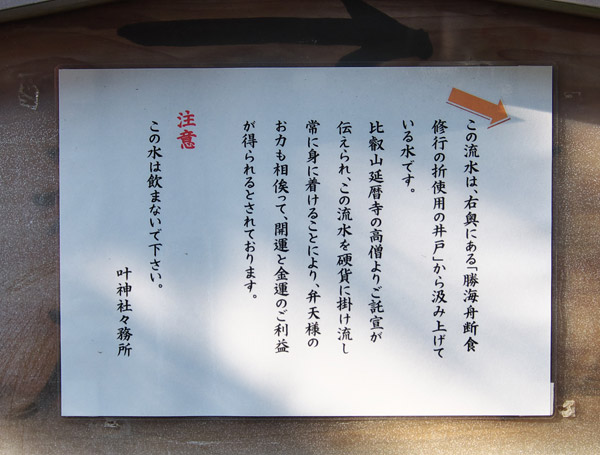 この流水は、右奥にある「勝海舟断食
修行の折使用の井戸」から汲み上げて
いる水です。
比叡山延暦寺の高僧よりご託宣が
伝えられ、この流水を硬貨に掛け流し
常に身に着けることにより、弁天様の
お力も相俟って、開運と金運のご利益
が得られるとされております。
注意
この水は飲まないで下さい。
叶神社々務所